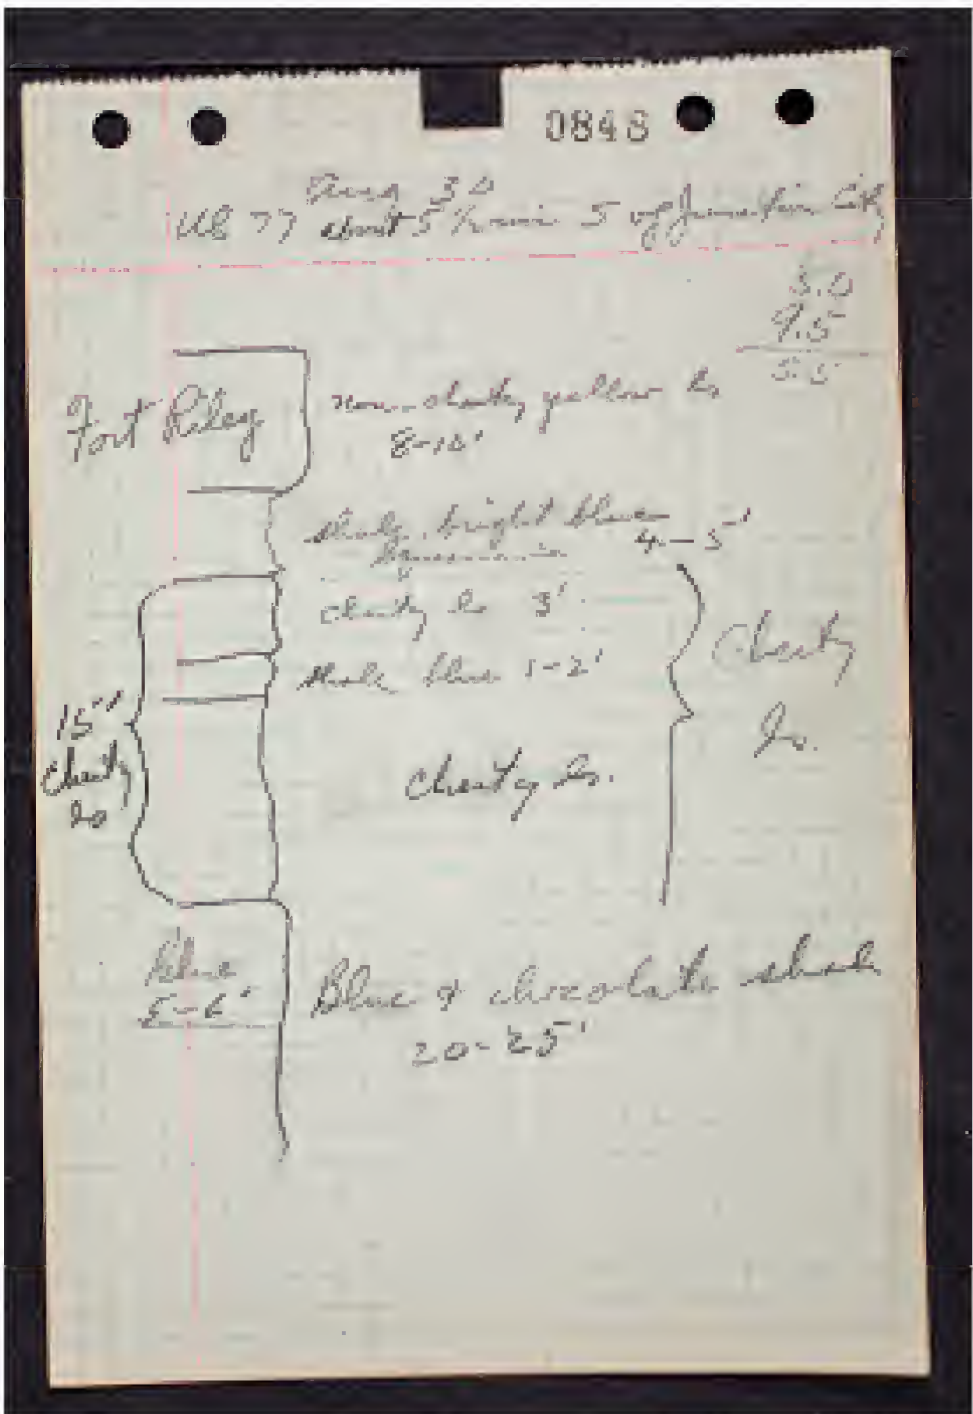 0848
Area 30
US 77 about 5 1/2 mi S of Junction City
3.0
9.5
5.5
Fort Riley
non-cherty yellow ls
8-10'
shaly, bright blue
4-5'
cherty ls 3'
shale blue 1-2'
cherty ls.
Cherty
ls.
15'
cherty
ls
Blue
5-6'
Blue & chocolate shale
20-25'